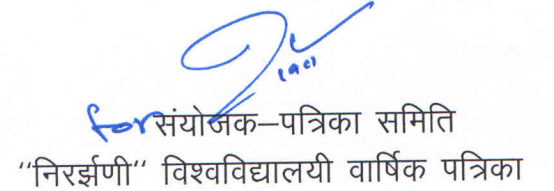 for संयोजक–पत्रिका समिति
''निरर्झणी'' विश्वविद्यालयी वार्षिक पत्रिका